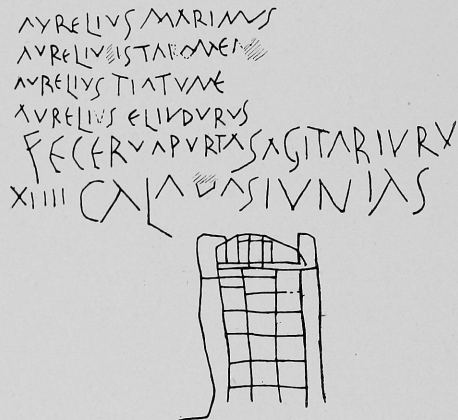 AVRELIVS
AVRELIVS
AVRELIVS TIATVNE
AVRELIVS ELIVDVRVS
FECERVAPVRTA SAGITARIVRV
XIIII CALADAS IVNIAS